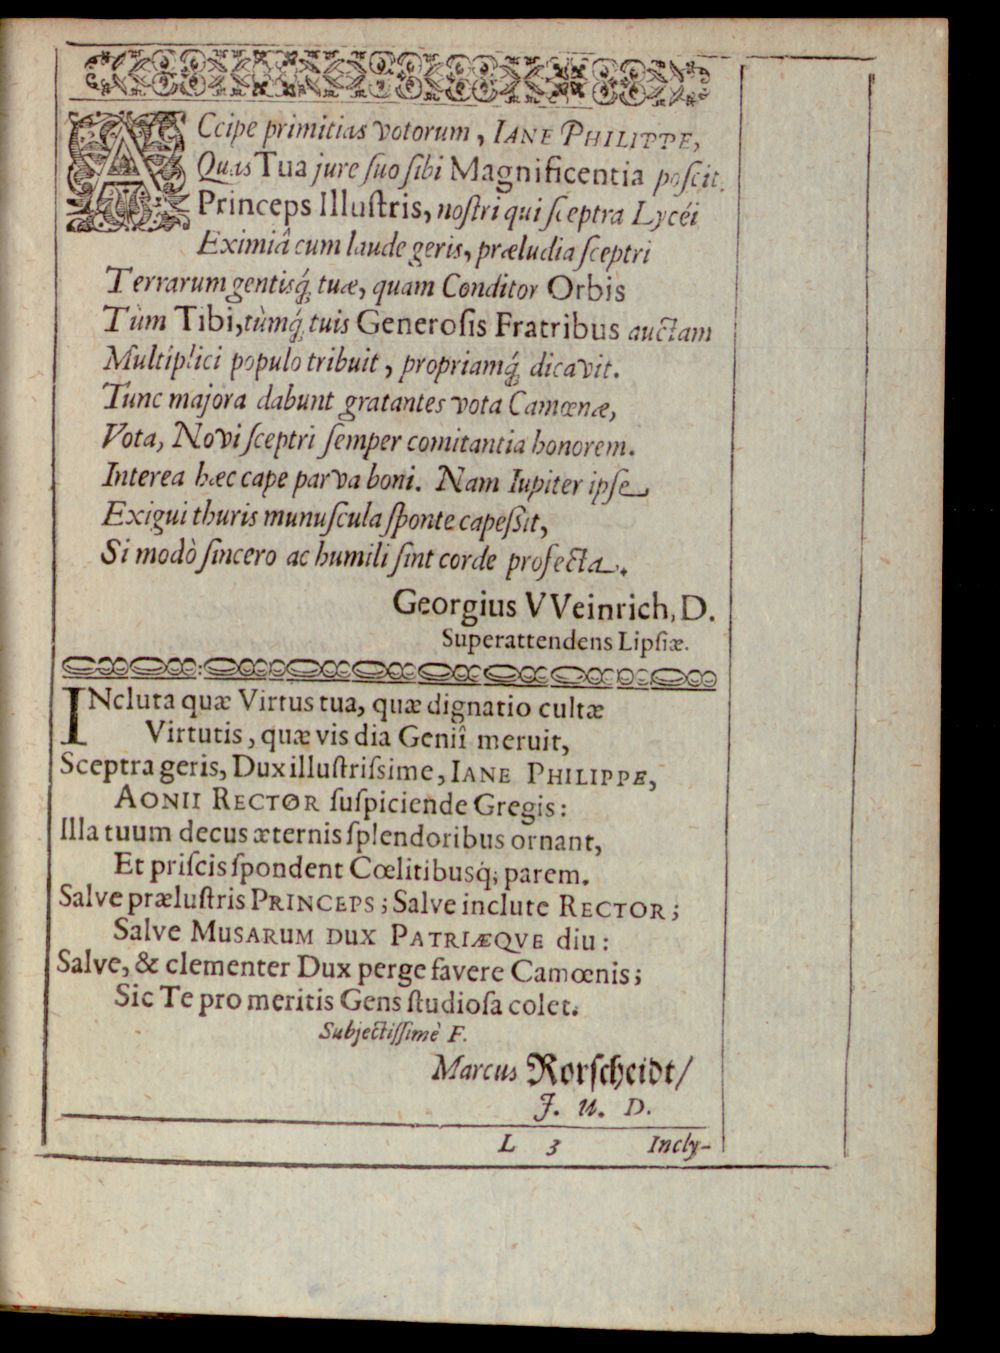 ACcipe primitias votorum, IANE PHILIPPE,
Quas Tua jure ſuo ſibi Magnificentia poſcit.
Princeps Illuſtris, noſtri qui ſceptra Lycéi
Eximiâ cum laude geris, præludia ſceptri
Terrarum gentisq́; tuæ, quam Conditor Orbis
Tùm Tibi, tùmq́; tuis Generoſis Fratribus auctam
Multiplici populo tribuit, propriamq́; dicavit.
Tunc majora dabunt gratantes vota Camœnæ,
Vota, Novi ſceptri ſemper comitantia honorem.
Interea hæc cape parva boni. Nam Iupiter ipſe
Exigui thuris munuſcula ſponte capeſſit,
Si modò ſincero ac humili ſint corde profecta.
Georgius VVeinrich, D.
Superattendens Lipſiæ.
INcluta quæ Virtus tua, quæ dignatio cultæ
Virtutis, quæ vis dia Geniî meruit,
Sceptra geris, Dux illuſtriſsime, IANE PHILIPPE,
AONII RECTOR ſuſpiciende Gregis:
Illa tuum decus æternis ſplendoribus ornant,
Et priſcis ſpondent Cœlitibusq́; parem.
Salve præluſtris PRINCEPS; Salve inclute RECTOR;
Salve MUSARUM DUX PATRIÆQVE diu:
Salve, & clementer Dux perge favere Camœnis;
Sic Te pro meritis Gens ſtudioſa colet.
Subjectiſſimè F.
Marcus Rorſcheidt/
J. U. D.
L 3 Incly-